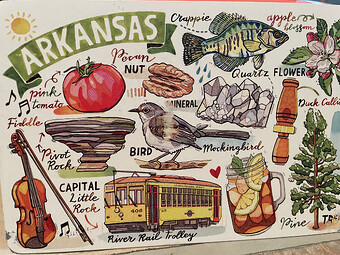 ARKANSAS
Crappie
apple
blossom
Pecan
NUT
Quartz
FLOWER
pink
tomato
MINERAL
Duck
Fiddle
Pivot
Rock
BIRD
Mockingbird
CAPITAL
Little
Rock
406
Pine
River Rail Trolley